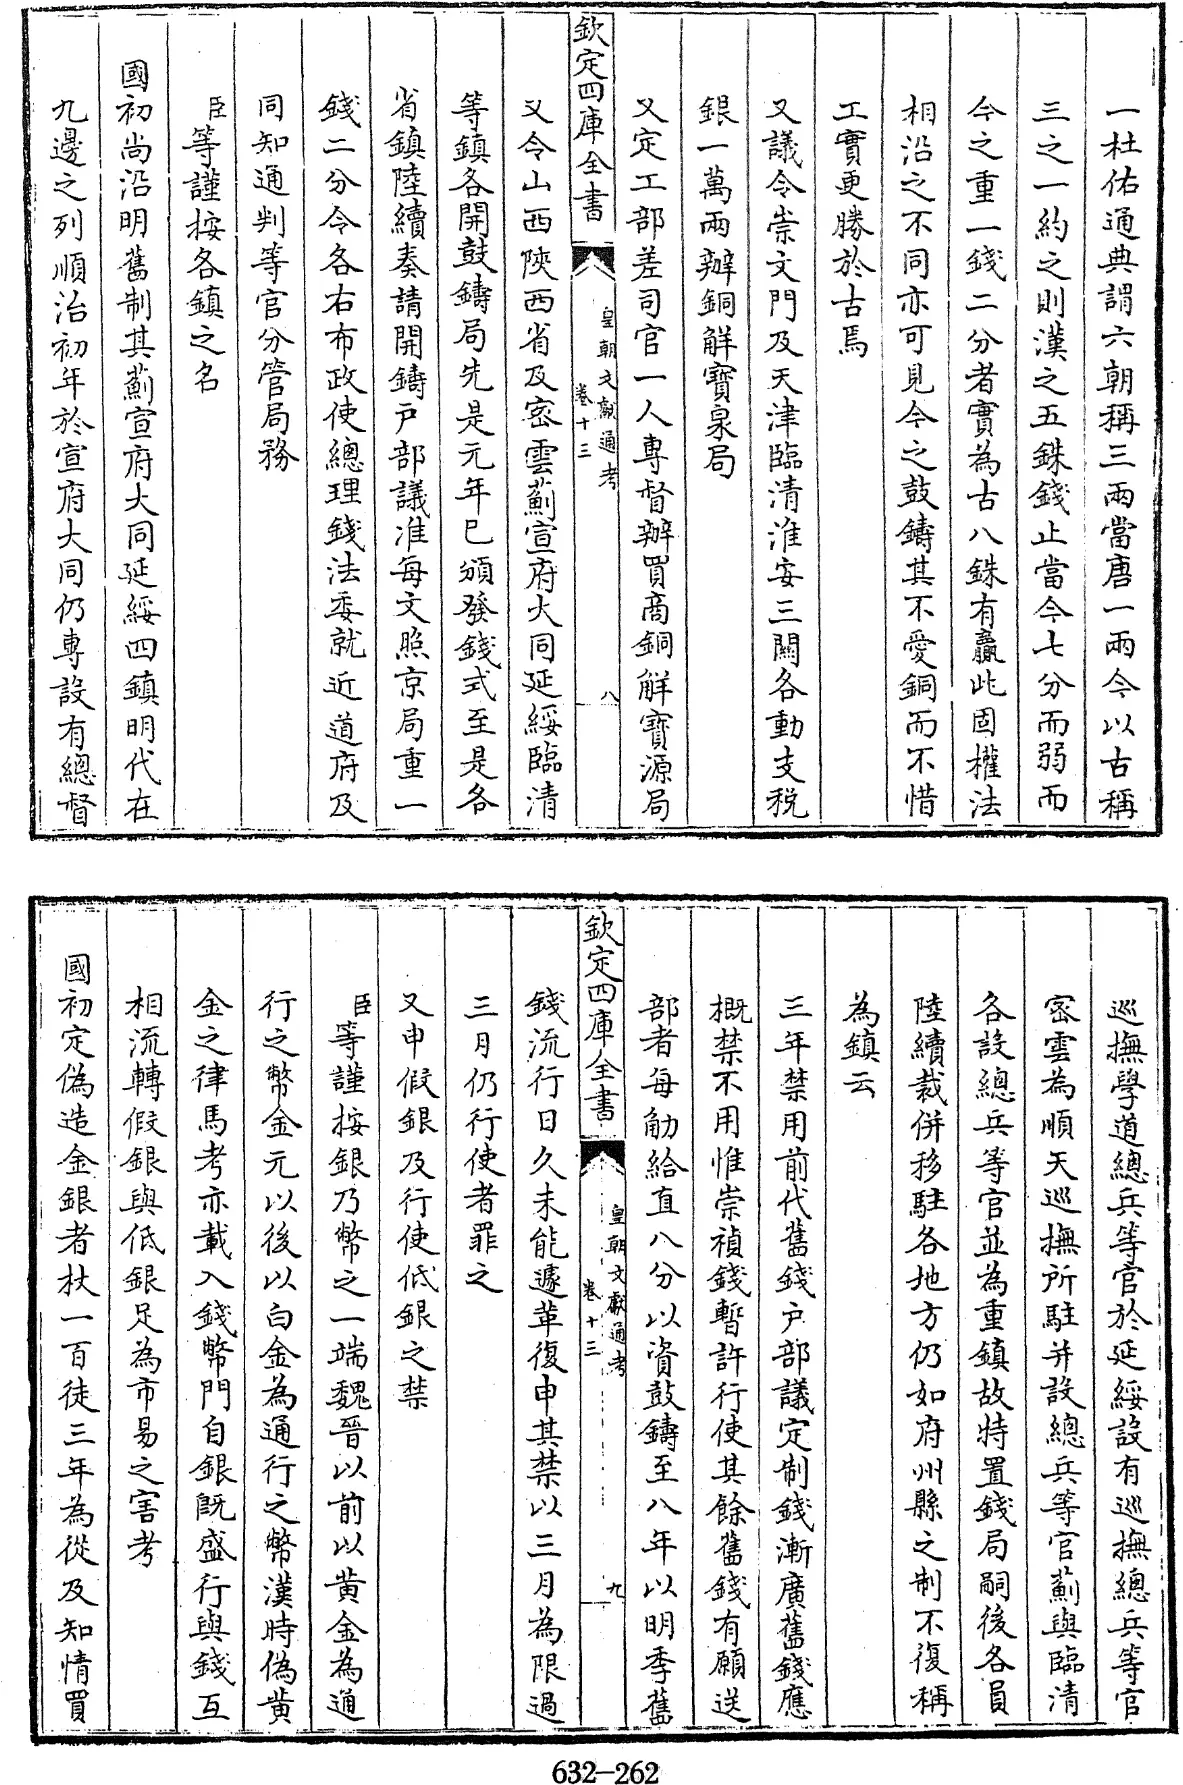 一杜佑通典謂六朝稱三兩當唐一兩今以古稱
三之一約之則漢之五銖錢止當今七分而弱而
今之重一錢二分者實為古八銖有贏此固權法
相沿之不同亦可見今之鼓鑄其不愛銅而不惜
工實更勝於古焉
又議令崇文門及天津臨清淮安三關各動支税
銀一萬兩辦銅解寶泉局
又定工部差司官一人專督辦買商銅解寶源局
欽定四庫全書
皇朝文獻通考
卷十三
八
又令山西陝西省及密雲薊宣府大同延綏臨清
等鎮各開鼓鑄局先是元年已頒發錢式至是各
省鎮陸續奏請開鑄户部議准每文照京局重一
錢二分令各右布政使總理錢法委就近道府及
同知通判等官分管局務
臣等謹按各鎮之名
國初尚沿明舊制其薊宣府大同延綏四鎮明代在
九邊之列順治初年於宣府大同仍專設有總督
巡撫學道總兵等官於延綏設有巡撫總兵等官
密雲為順天巡撫所駐并設總兵等官薊與臨清
各設總兵等官並為重鎮故特置錢局嗣後各員
陸續裁併移駐各地方仍如府州縣之制不復稱
為鎮云
三年禁用前代舊錢户部議定制錢漸廣舊錢應
概禁不用惟崇禎錢暫許行使其餘舊錢有願送
部者每觔給直八分以資鼓鑄至八年以明季舊
欽定四庫全書
皇朝文獻通考
卷十三
九
錢流行日久未能遽革復申其禁以三月為限過
三月仍行使者罪之
又申假銀及行使低銀之禁
臣等謹按銀乃幣之一端魏晉以前以黄金為通
行之幣金元以後以白金為通行之幣漢時偽黄
金之律馬考亦載入錢幣門自銀既盛行與錢互
相流轉假銀與低銀足為市易之害考
國初定偽造金銀者杖一百徒三年為從及知情買
632-262